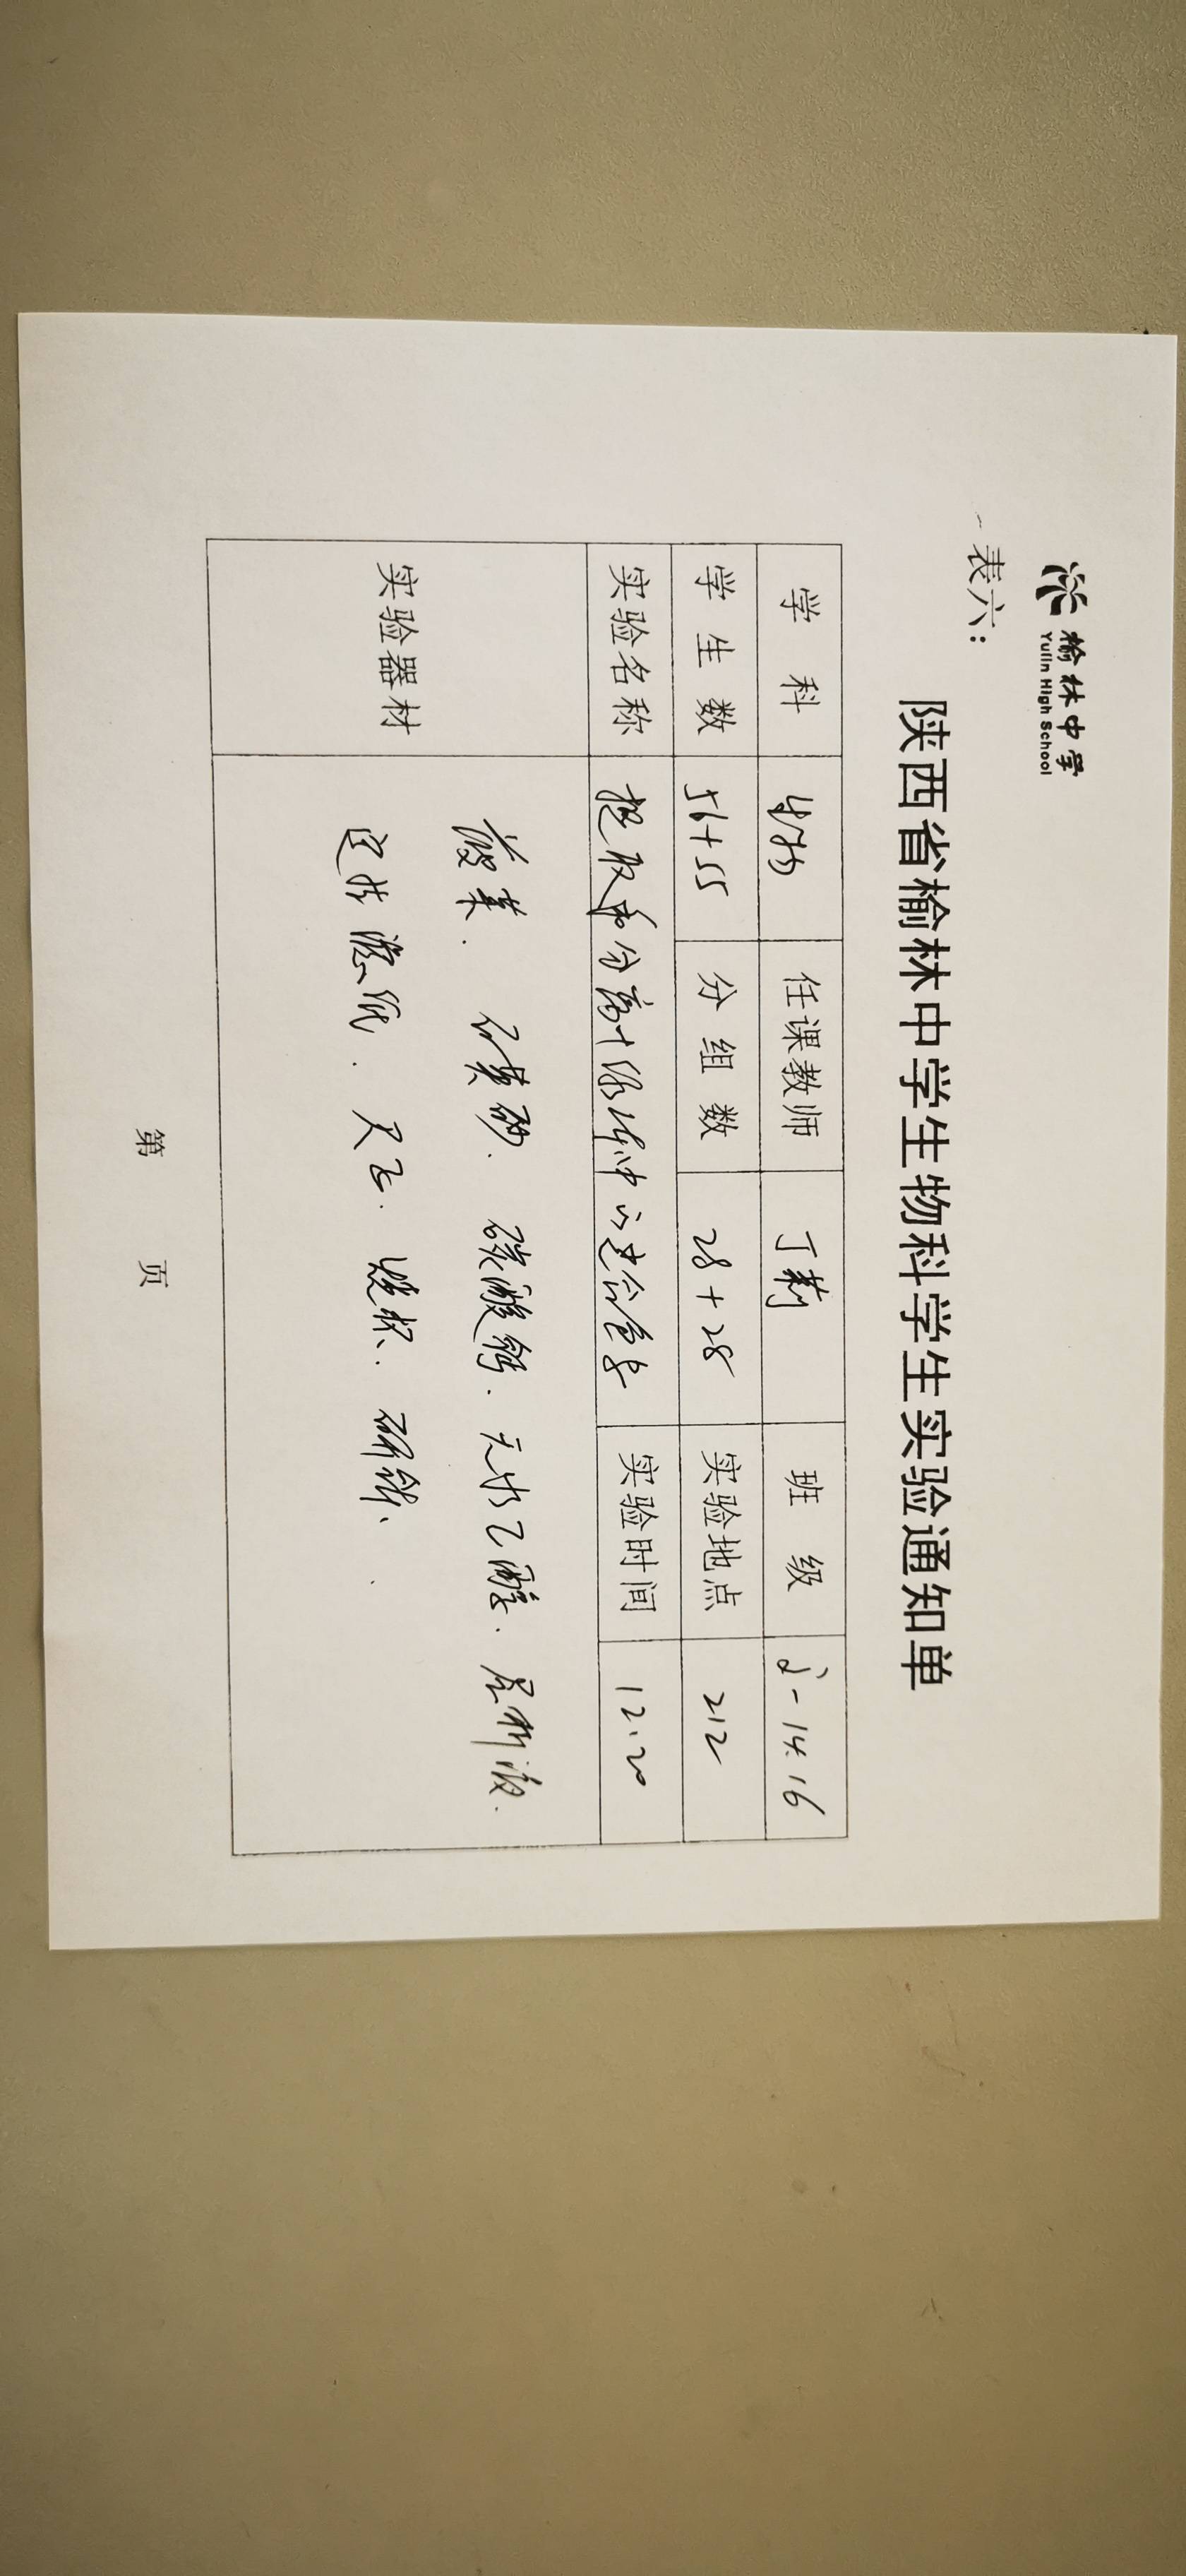 榆林中学
Yulin High School
表六：
陕西省榆林中学生物科学生实验通知单
学 科 生物 任课教师 丁莉 班 级 高一 14.16
学 生 数 56+55 分 组 数 28+28 实验地点 212
实验名称 提取和分离叶绿体中的光合色素 实验时间 12.20
实验器材
菠菜. 石英砂. 碳酸钙. 无水乙醇. 层析液.
定性滤纸. 尺子. 烧杯. 研钵.
第 页